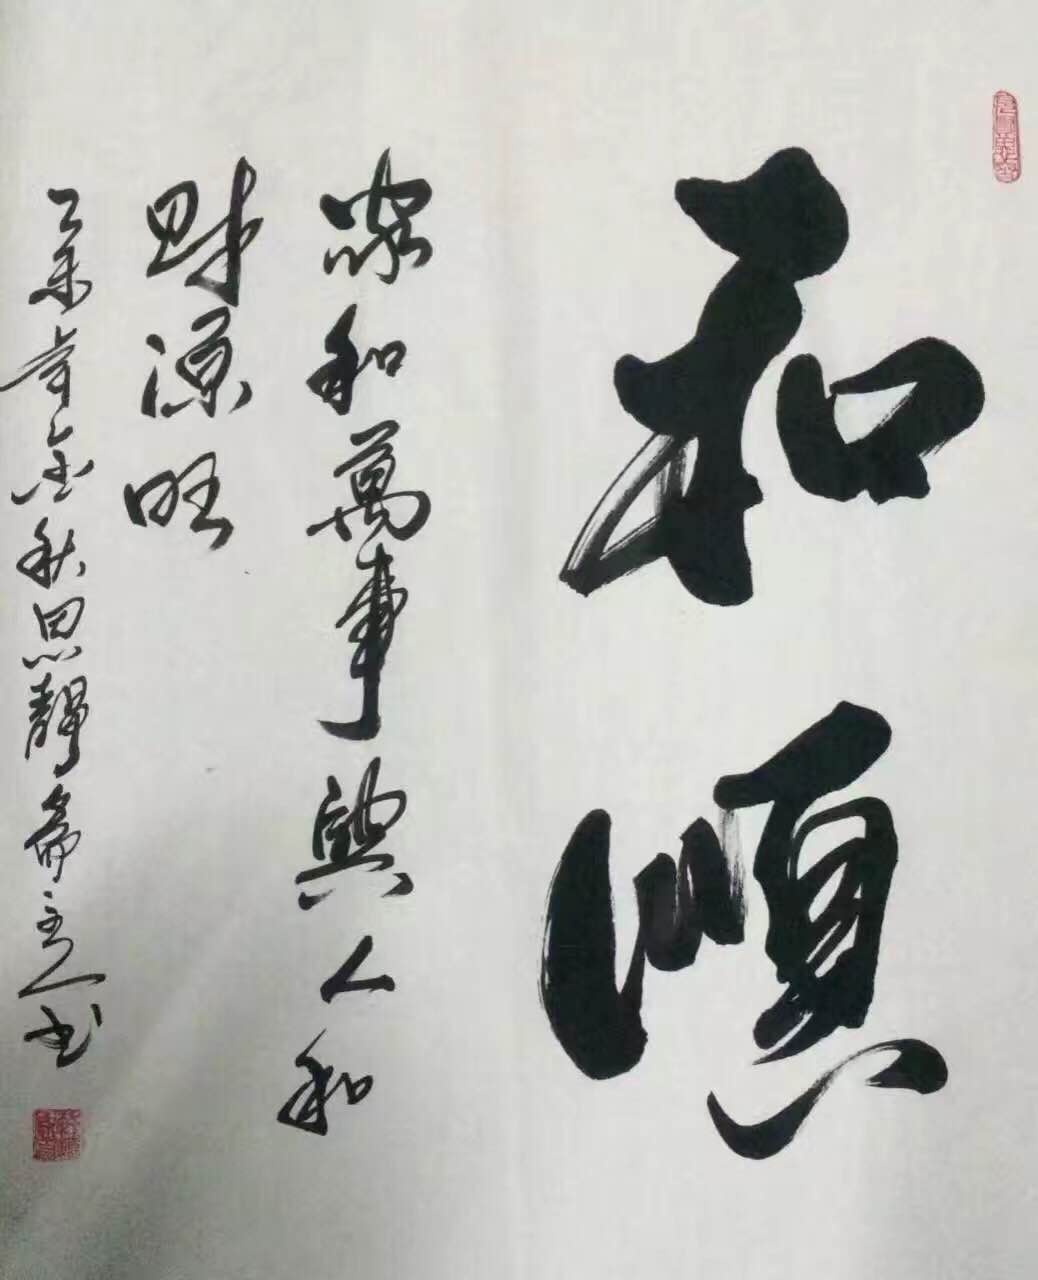 和順
家和萬事興人和
財源旺
乙未年金秋思靜齋主人书